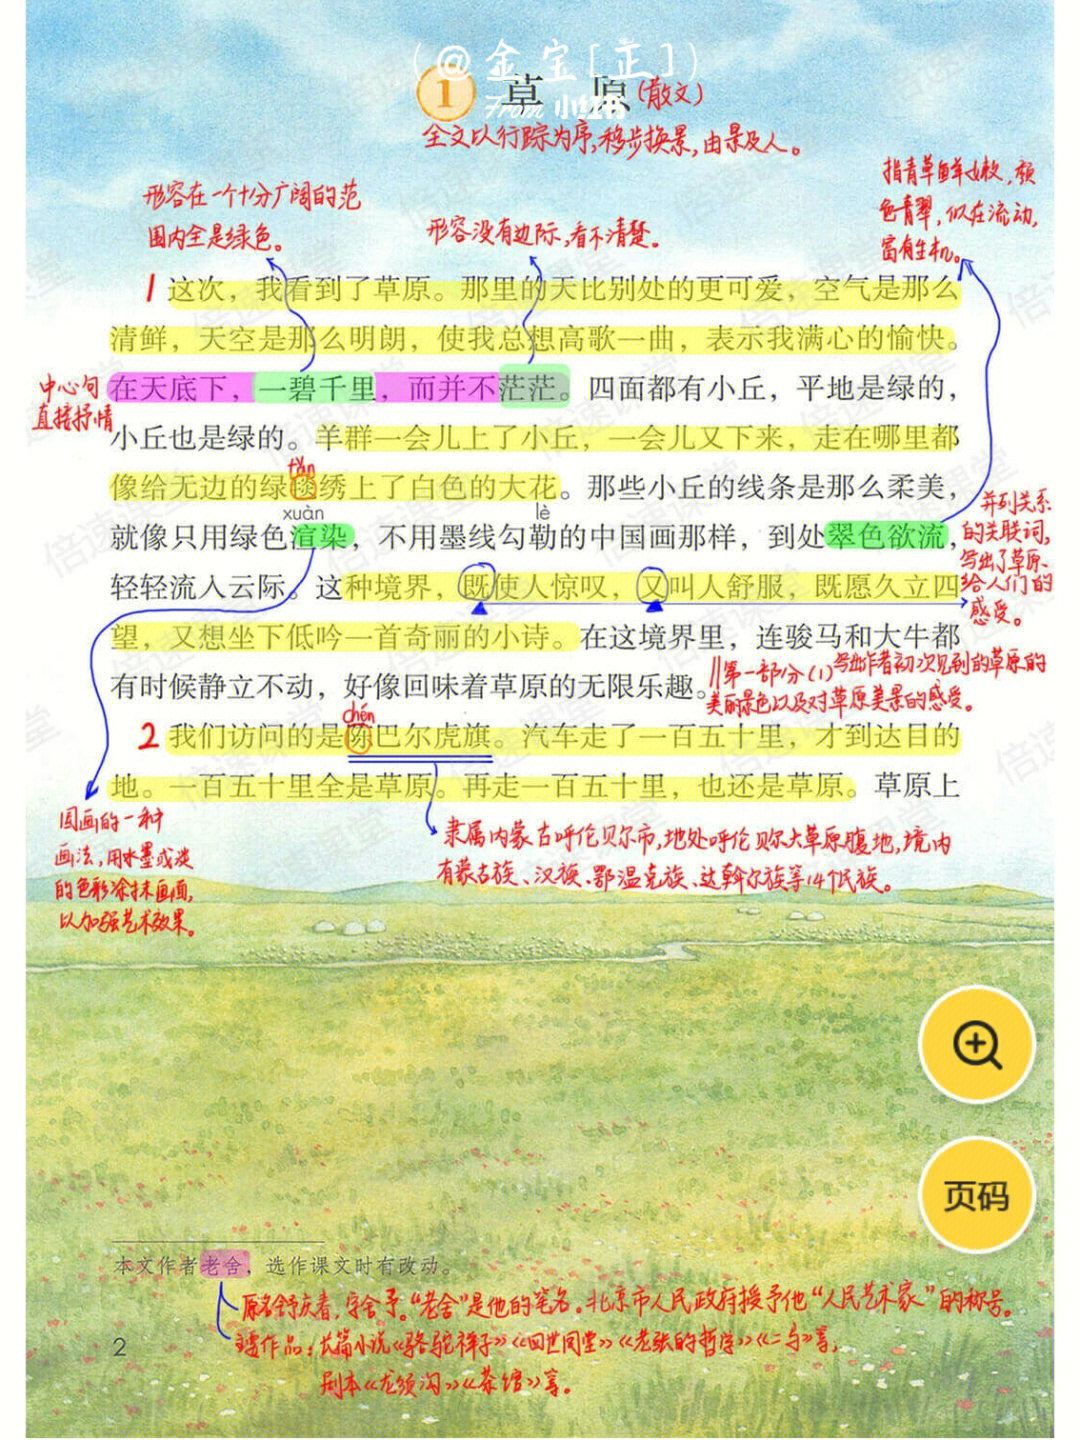 (@金宝[正])
1 草 原(散文)
From 小红书
全文以行踪为序,移步换景,由景及人。
形容在一个十分广阔的范
围内全是绿色。
形容没有边际,看不清楚。
指青草鲜嫩,颜
色青翠,似在流动,
富有生机。
1 这次，我看到了草原。那里的天比别处的更可爱，空气是那么
清鲜，天空是那么明朗，使我总想高歌一曲，表示我满心的愉快。
中心句
直接抒情
在天底下，一碧千里，而并不茫茫。四面都有小丘，平地是绿的，
小丘也是绿的。羊群一会儿上了小丘，一会儿又下来，走在哪里都
tǎn
像给无边的绿毯绣上了白色的大花。那些小丘的线条是那么柔美，
xuàn lè
就像只用绿色渲染，不用墨线勾勒的中国画那样，到处翠色欲流，
并列关系
的关联词,
写出了草原
给人们的
感受。
轻轻流入云际。这种境界，既使人惊叹，又叫人舒服，既愿久立四
望，又想坐下低吟一首奇丽的小诗。在这境界里，连骏马和大牛都
有时候静立不动，好像回味着草原的无限乐趣。
‖第一部分(1)写出作者初次见到的草原的
美丽景色以及对草原美景的感受。
chén
2 我们访问的是陈巴尔虎旗。汽车走了一百五十里，才到达目的
地。一百五十里全是草原。再走一百五十里，也还是草原。草原上
国画的一种
画法,用水墨或淡
的色彩涂抹画面,
以加强艺术效果。
隶属内蒙古呼伦贝尔市,地处呼伦贝尔大草原腹地,境内
有蒙古族、汉族、鄂温克族、达斡尔族等14个民族。
页码
本文作者老舍，选作课文时有改动。
原名舒庆春,字舍予。“老舍”是他的笔名。北京市人民政府授予他“人民艺术家”的称号。
主要作品:长篇小说《骆驼祥子》《四世同堂》《老张的哲学》《二马》等,
剧本《龙须沟》《茶馆》等。
2
倍速课堂